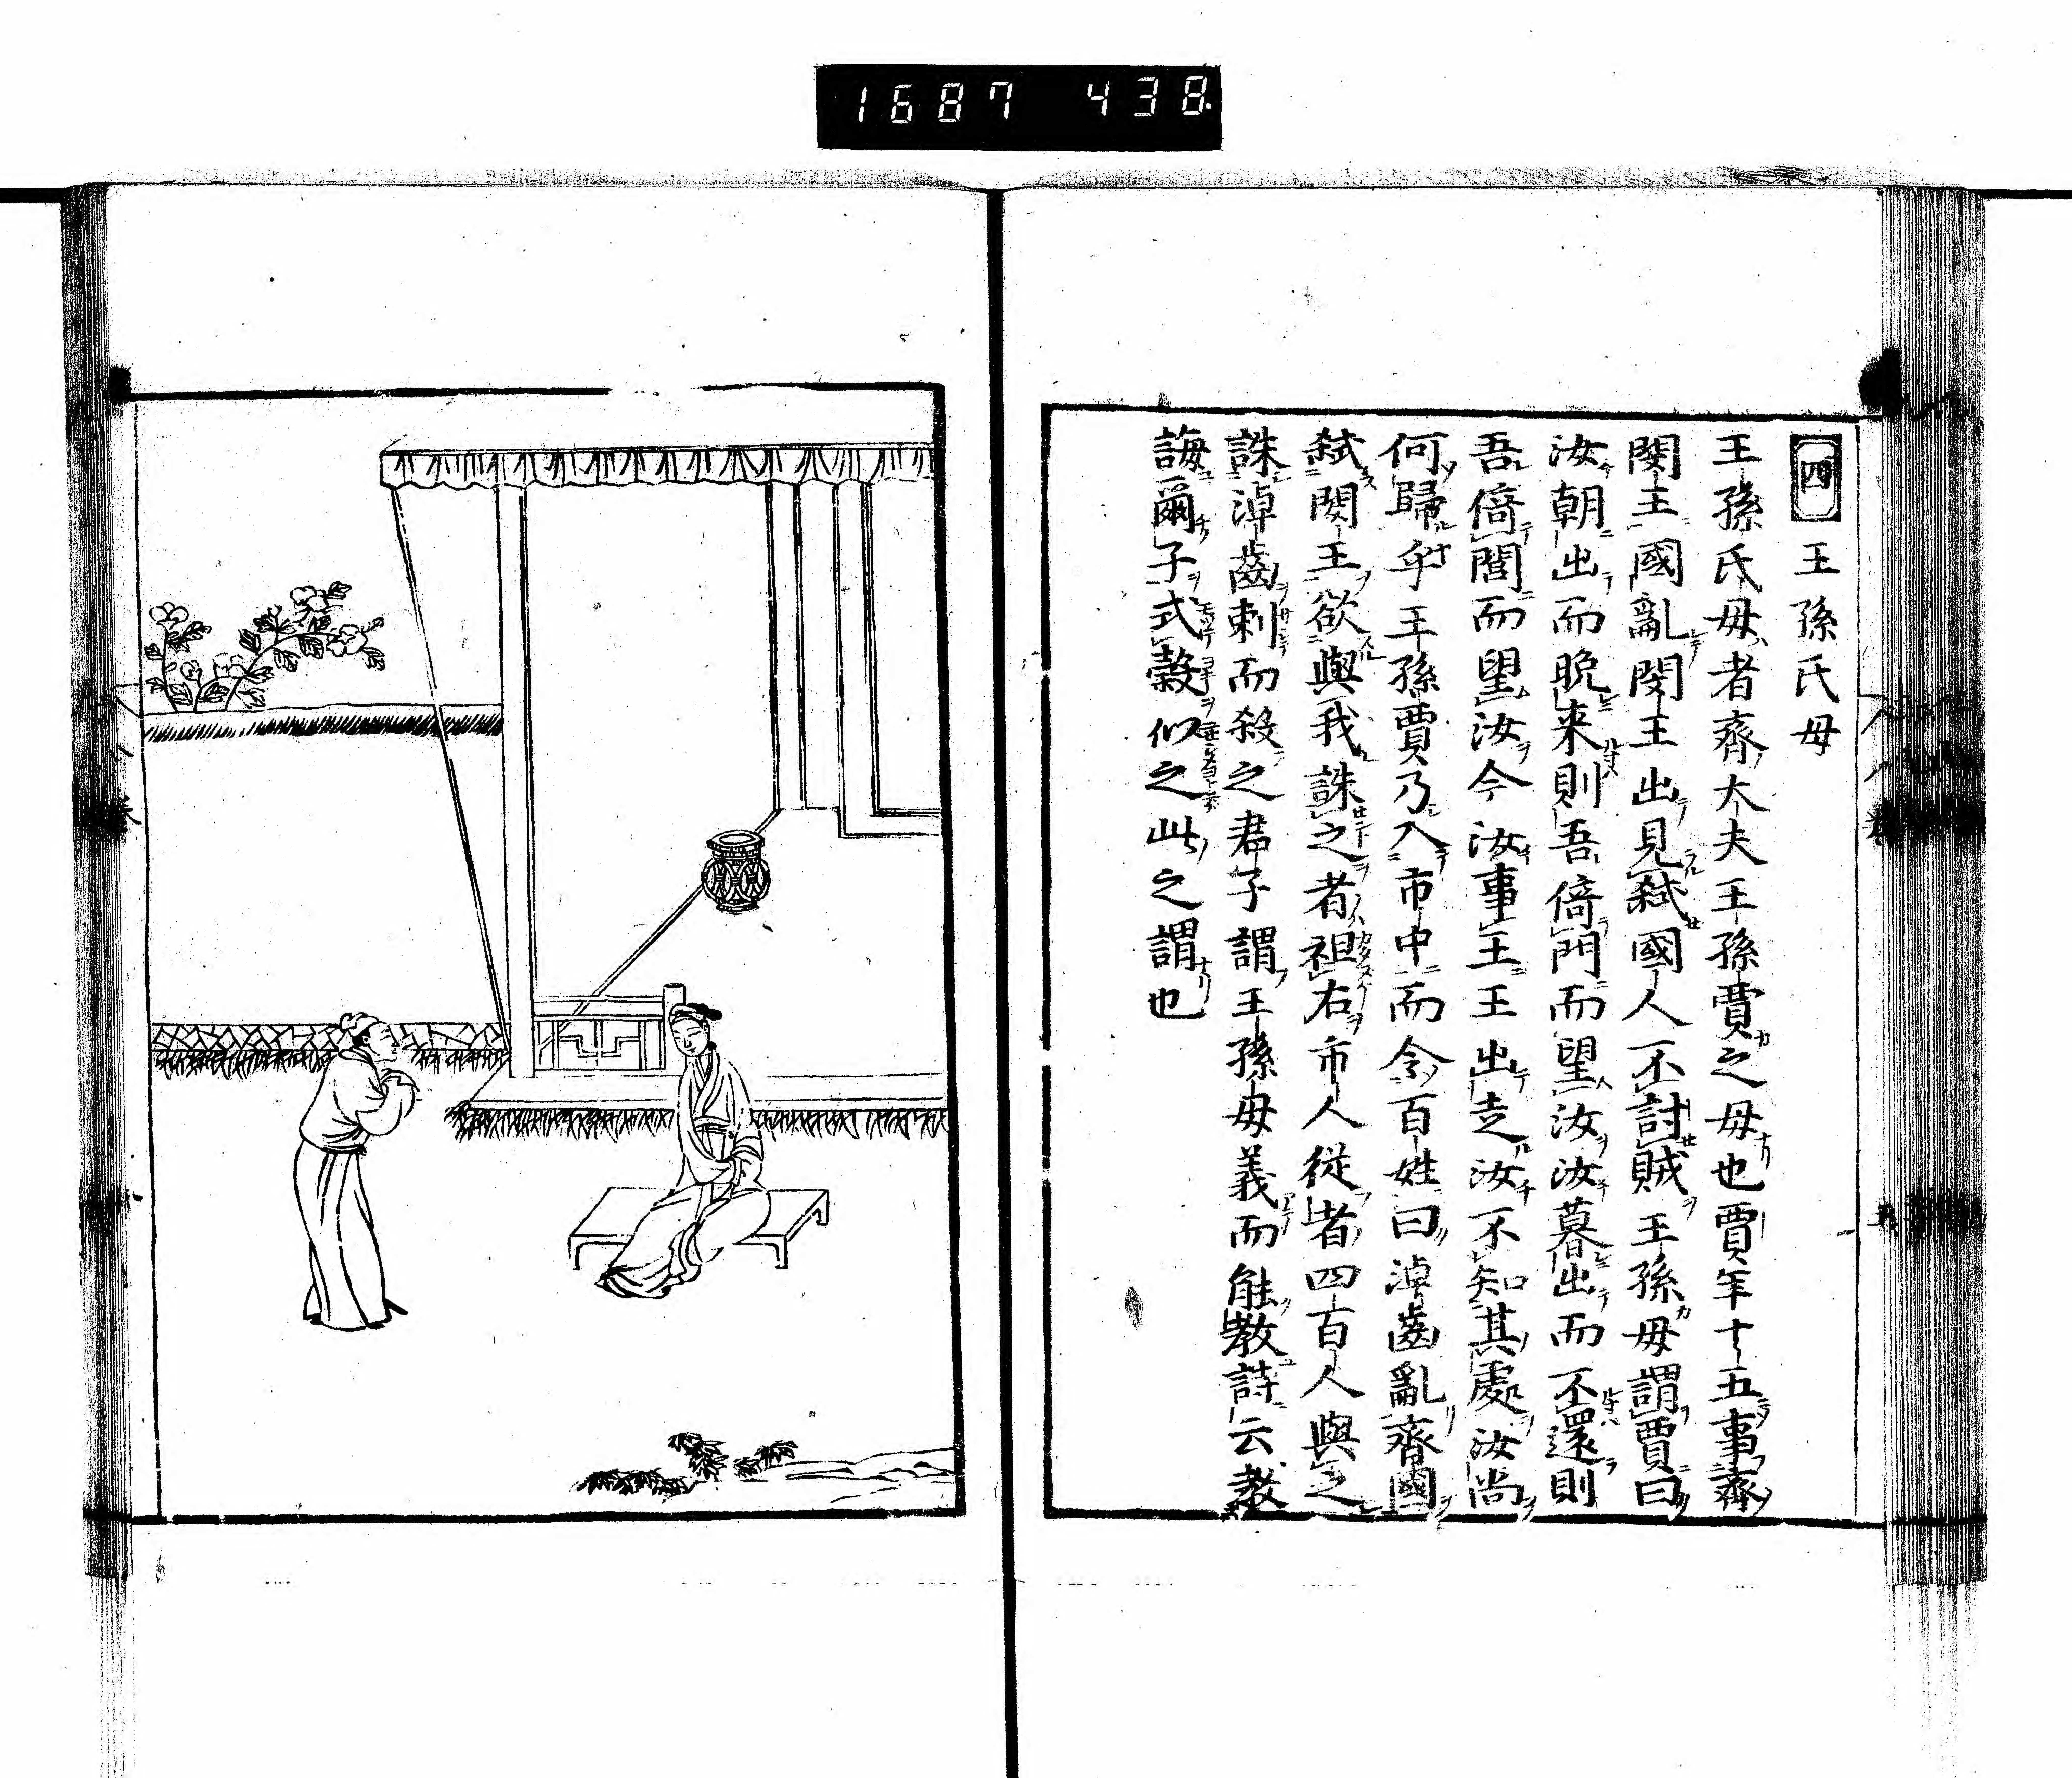 1687 438.
四 王孫氏母
王孫氏母者齊大夫王孫賈之母也賈年十五事齊
閔王國亂閔王出見弑國人不討賊王孫母謂賈曰
汝朝出而晩来則吾倚門而望汝汝暮出而不還則
吾倚閭而望汝今汝事王王出走汝不知其處汝尚
何歸乎王孫賈乃入市中而令百姓曰淖齒亂齊國
弑閔王欲與我誅之者袒右市人從者四百人與之
誅淖齒刺而殺之君子謂王孫母義而能教詩云教
誨爾子式穀似之此之謂也